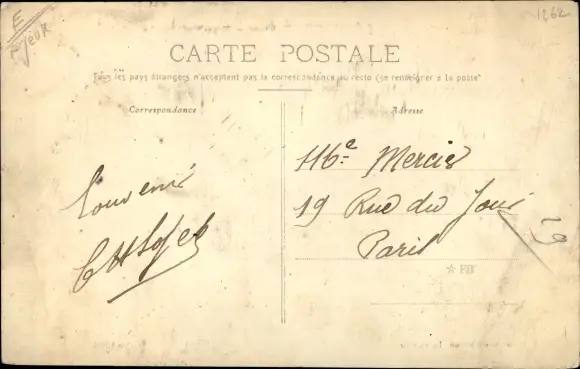 E
1262
CARTE POSTALE
Tous les pays étrangers n'acceptent pas la correspondance au recto (se renseigner à la poste)
Correspondance
Adresse
Souvenir
19 Rue du Jour
Paris
19
FD